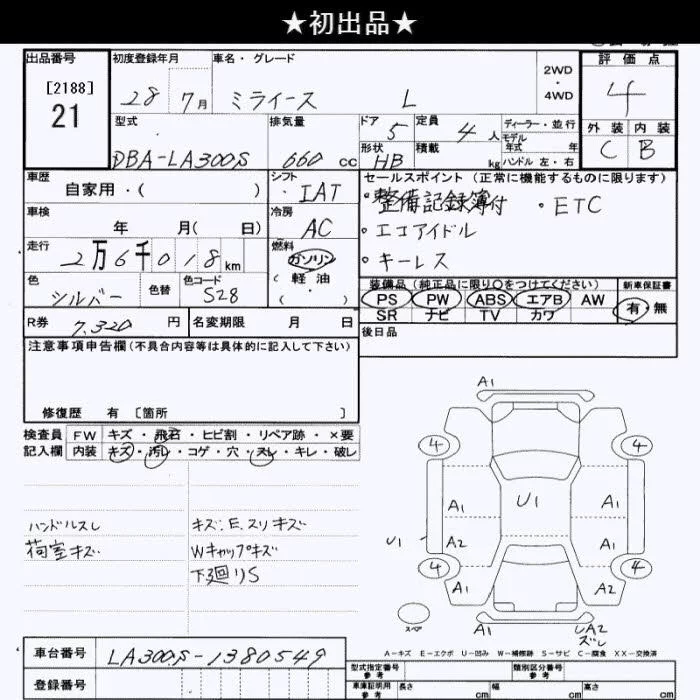 ★初出品★
出品番号 初度登録年月 車名・グレード 2WD・4WD 評価点
[2188]
21
28 7月 ミライース L 4
型式 排気量 ドア 5 定員 4人 ディーラー・並行
モデル年式 年
外装 内装
DBA-LA300S 660 cc 形状 HB 積載 kg ハンドル 左・右 C B
車歴 自家用・( ) シフト ・IAT セールスポイント(正常に機能するものに限ります)
・整備記録簿付 ・ETC
車検 年 月( 日) 冷房 AC ・エコアイドル
走行 2万6千018km 燃料 ガソリン ・キーレス
(軽油・ )
色 シルバー 色替 色コード S28
装備品(純正品に限り○をつけてください) 新車保証書
PS PW ABS エアB AW 有・無
SR ナビ TV カワ
R券 7,320円 名変期限 月 日 後日品
注意事項申告欄(不具合内容等は具体的に記入して下さい)
修復歴 有 [箇所 ]
検査員 FW キズ・飛石・ヒビ割・リペア跡・×要
記入欄 内装 キズ・汚レ・コゲ・穴・スレ・キレ・破レ
ハンドルスレ キズ:E.スリキズ
荷室キズ Wキャップキズ
下廻りS
A1
4 4
A1 U1 A1
U1 A2 A1
4 4
A1 A2
スペア A1 A2
ズレ
A-キズ E-エクボ U-凹み W-補修跡 S-サビ C-腐食 XX-交換済
車台番号 LA300S-1380549
登録番号
型式指定番号 参考 類別区分番号 参考
車庫証明用 参考 長さ cm 幅 cm 高さ cm